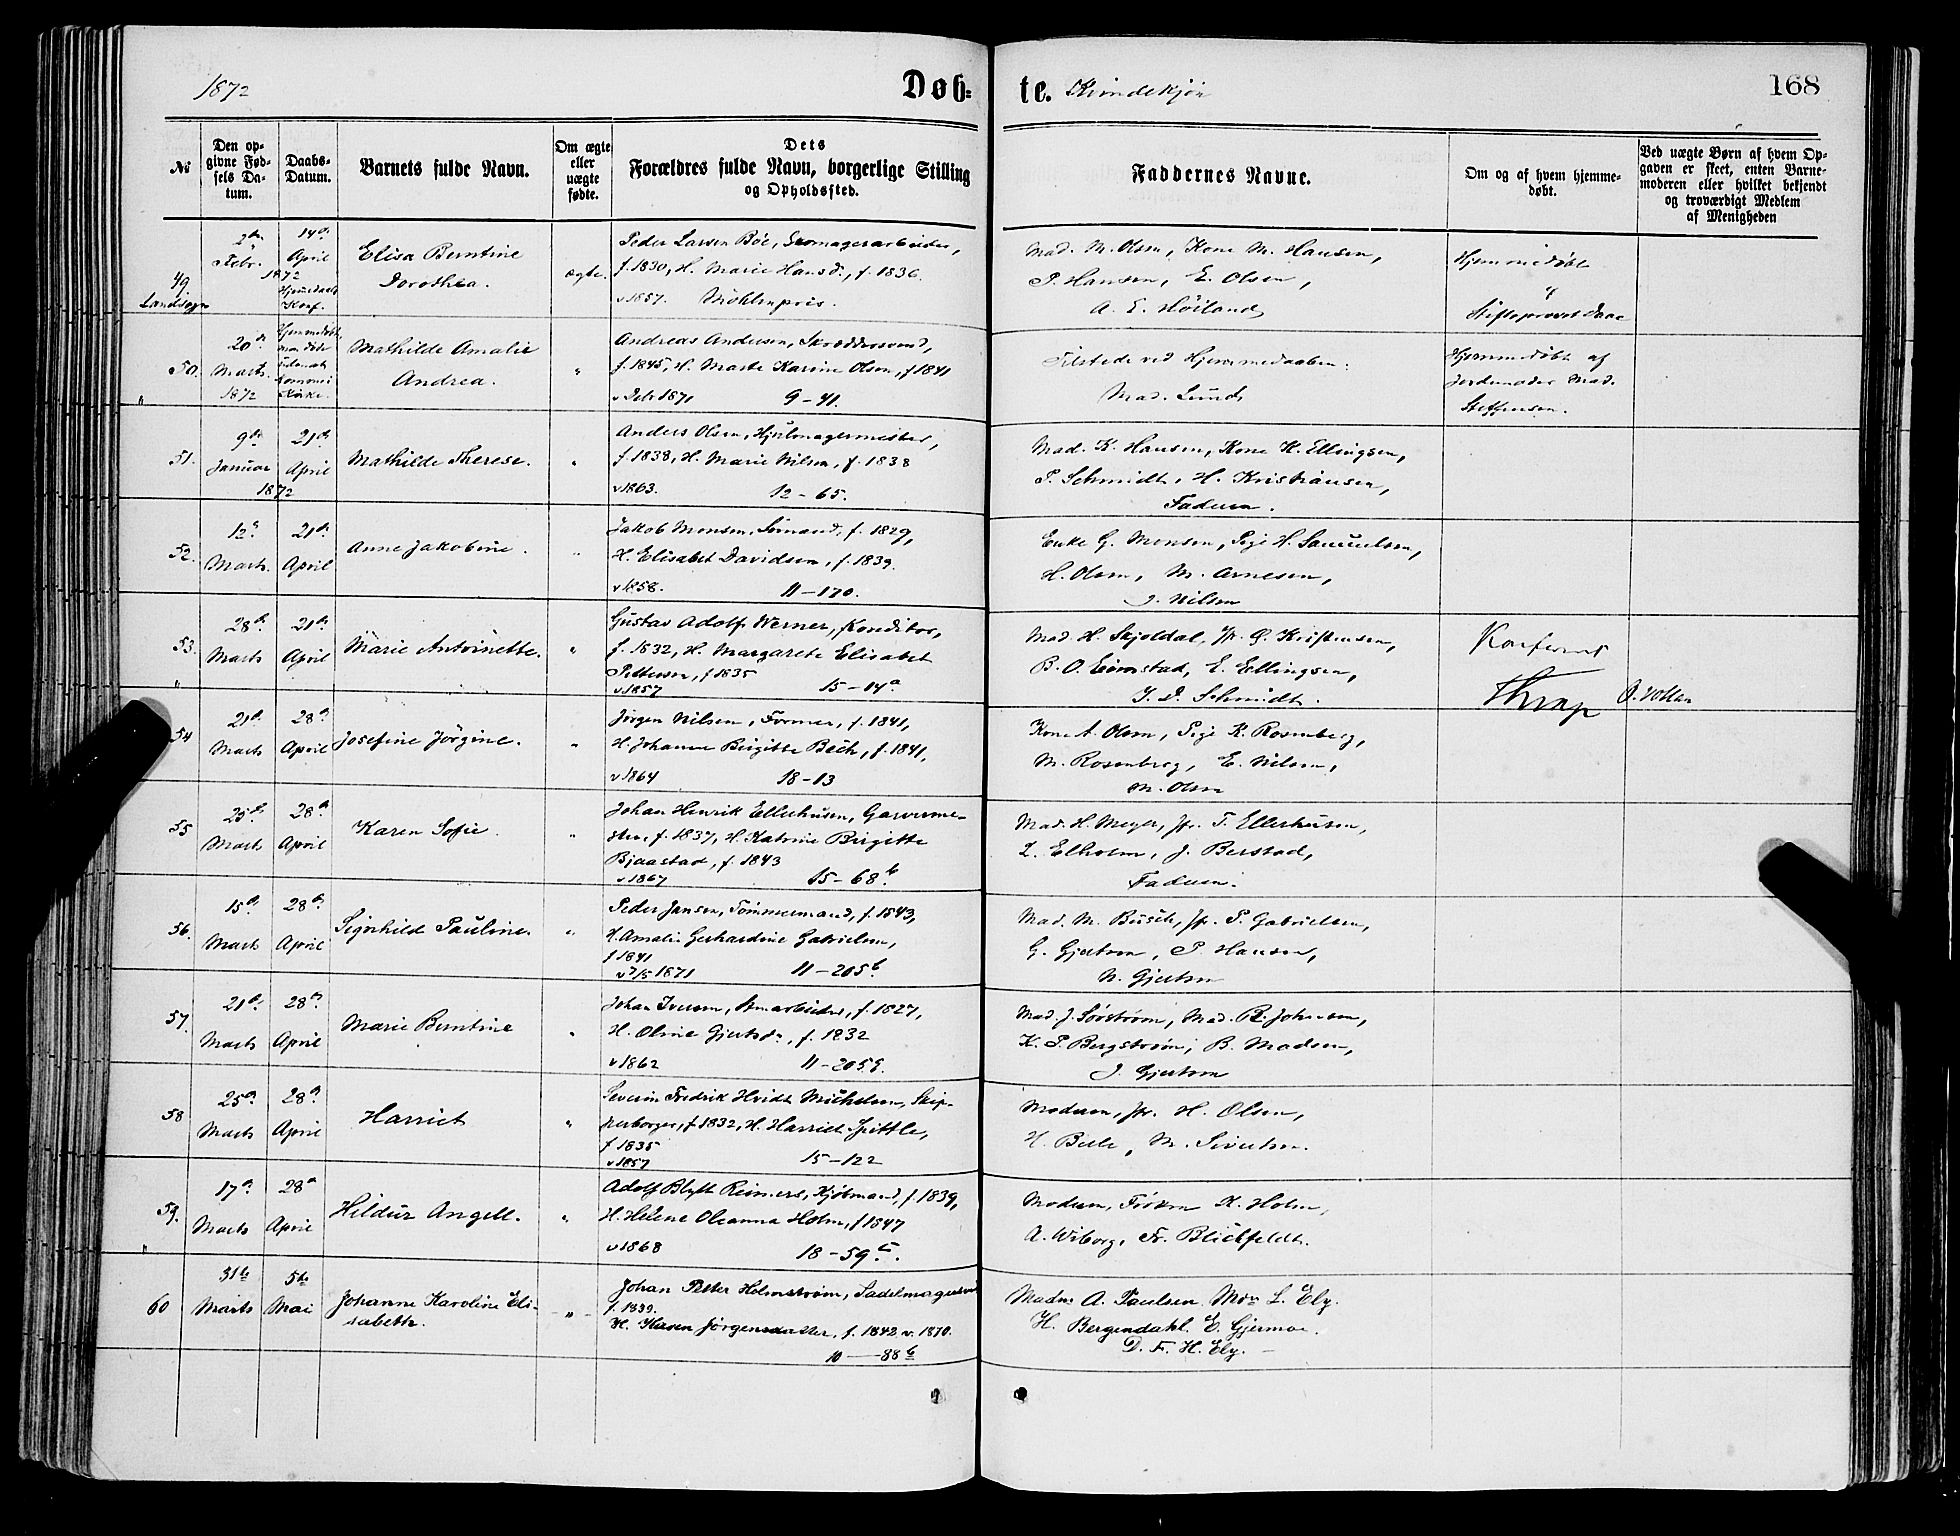 1872 Døb= te. Kvindekjøn 168
№
Den op-
givne Fød-
sels Da-
tum.
Daabs-
Datum.
Barnets fulde Navn.
Om ægte
eller
uægte
fødte.
Dets
Forældres fulde Navn, borgerlige Stilling
og Opholdssted.
Faddernes Navne.
Om og af hvem hjemme-
døbt.
Ved uægte Børn af hvem Op-
gaven er skeet, enten Barne-
moderen eller hvilket bekjendt
og troværdigt Medlem
af Menigheden
49.
Landsogn
2den
Febr.
1872
14de
April
Hjemedøbt
Konf.
Elisa Berntine
Dorothea.
ægte.
Peder Larsen Böe, Skomagerarbeider,
f. 1830, H. Marie Hansd., f. 1836.
v 1857. Möhlenpris.
Mad. M. Olsen, Kone M. Hansen,
P. Hansen, E. Olsen,
A. E. Höiland
Hjemmedöbt
af
Stiftsprovst Daae
50.
"
20de
Marts
1872
Hjemmedöbt,
Kirke.
Mathilde Amalie
Andrea.
"
Andreas Andersen, Skræddersvend,
f. 1845, H. Marte Karine Olsen, f 1841
v Debr 1871 9-41.
Tilstede ved Hjemmedaaben:
Mad. Lund,
Hjemmedöbt af
Jordemoder Mad.
Steffensen.
51.
9de
Januar
1872
21de
April
Mathilde Therese.
"
Anders Olsen, Hjulmagermester,
f. 1838, H. Marie Nilsen, f. 1838
v 1863. 12-65.
Mad. K. Hansen, Kone K. Ellingsen,
P. Schmidt, H. Kristiansen,
Faderen.
52.
12te
Marts.
21de
April
Anne Jakobine.
"
Jakob Monsen, Sömand, f. 1829,
H. Elisabet Davidsen, f. 1839.
v 1858. 11-170.
Enke G. Monsen, Pige H. Samuelsen,
H. Olsen, M. Arnesen,
J. Nilsen
53.
"
28de
Marts
21de
April
Marie Antoinette.
"
Gustav Adolf Werner, Konditor,
f. 1832, H. Margarete Elisabet
Pettersen, f 1835
v 1857 15-14a
Mad. H. Skjoldal, Jfr. G. Kristensen,
B. O. Eimstad, E. Ellingsen,
J. D. Schmidt.
Konfereret
Thrap
54
21de
Marts
28de
April
Josefine Jörgine.
"
Jörgen Nilsen, Former, f. 1841,
H. Johanne Birgitte Bech, f. 1841,
v 1864 18-13
Kone A. Olsen, Pige K. Rosenberg,
M. Rosenberg, E. Nilsen,
M. Olsen
55
25de
Marts
28de
April
Karen Sofie.
"
Johan Henrik Ellerhusen, Garverme-
ster, f. 1837, H. Katrine Birgitte
Bjaastad, f. 1843
v 1867 15-68b.
Mad. H. Meyer, Jfr. T. Ellerhusen,
L. Elholm, J. Berstad,
Faderen.
56.
15de
Marts
28de
April
Signhild Pauline.
"
Peder Jansen, Tömmermand, f. 1843,
H. Amalie Gerhardine Gabrielsen,
f 1841
v 7/5 1871 11-205b.
Mad. M. Busch, Jfr. P. Gabrielsen,
G. Gjertsen, P. Hansen,
N. Gjertsen
57.
21de
Marts
28de
April
Marie Berntine
"
Johan Iversen, f. 1827,
H. Oline Gjertsdr., f. 1832
v 1862 11-205g.
Mad. J. Sörström, Mad. B. Johnsen,
K. P. Bergström, B. Madsen,
J. Gjertsen
58
25de
Marts
28de
April
Harriet
"
Severin Fredrik Hvidt Michelsen, Skip-
perborger, f 1832, H. Harriet Spittle,
f 1835
v 1857 15-122
Moderen, Jfr. H. Olsen,
M. Sivertsen.
59.
"
17de
Marts
28de
April
Hildur Angell.
"
Adolf Blytt Reimers, Kjöbmand, f. 1839,
H. Helene Oleanna Holm, f 1847
v 1868 18-59c.
Moderen, Fröken K. Holm,
A. Wiborg, Fr. Blichfeldt.
60
31te
Marts
5te
Mai
Johanne Karoline Eli-
sabeth.
"
Johan Petter Holmström, Sadelmagersvend
f. 1839.
H. Karen Jörgensdatter, f. 1842. v. 1870.
10-88b
Madm A. Paulsen. L. Ely.
H. Bergendahl. E. Gjermoe.
D. F. H. Ely.